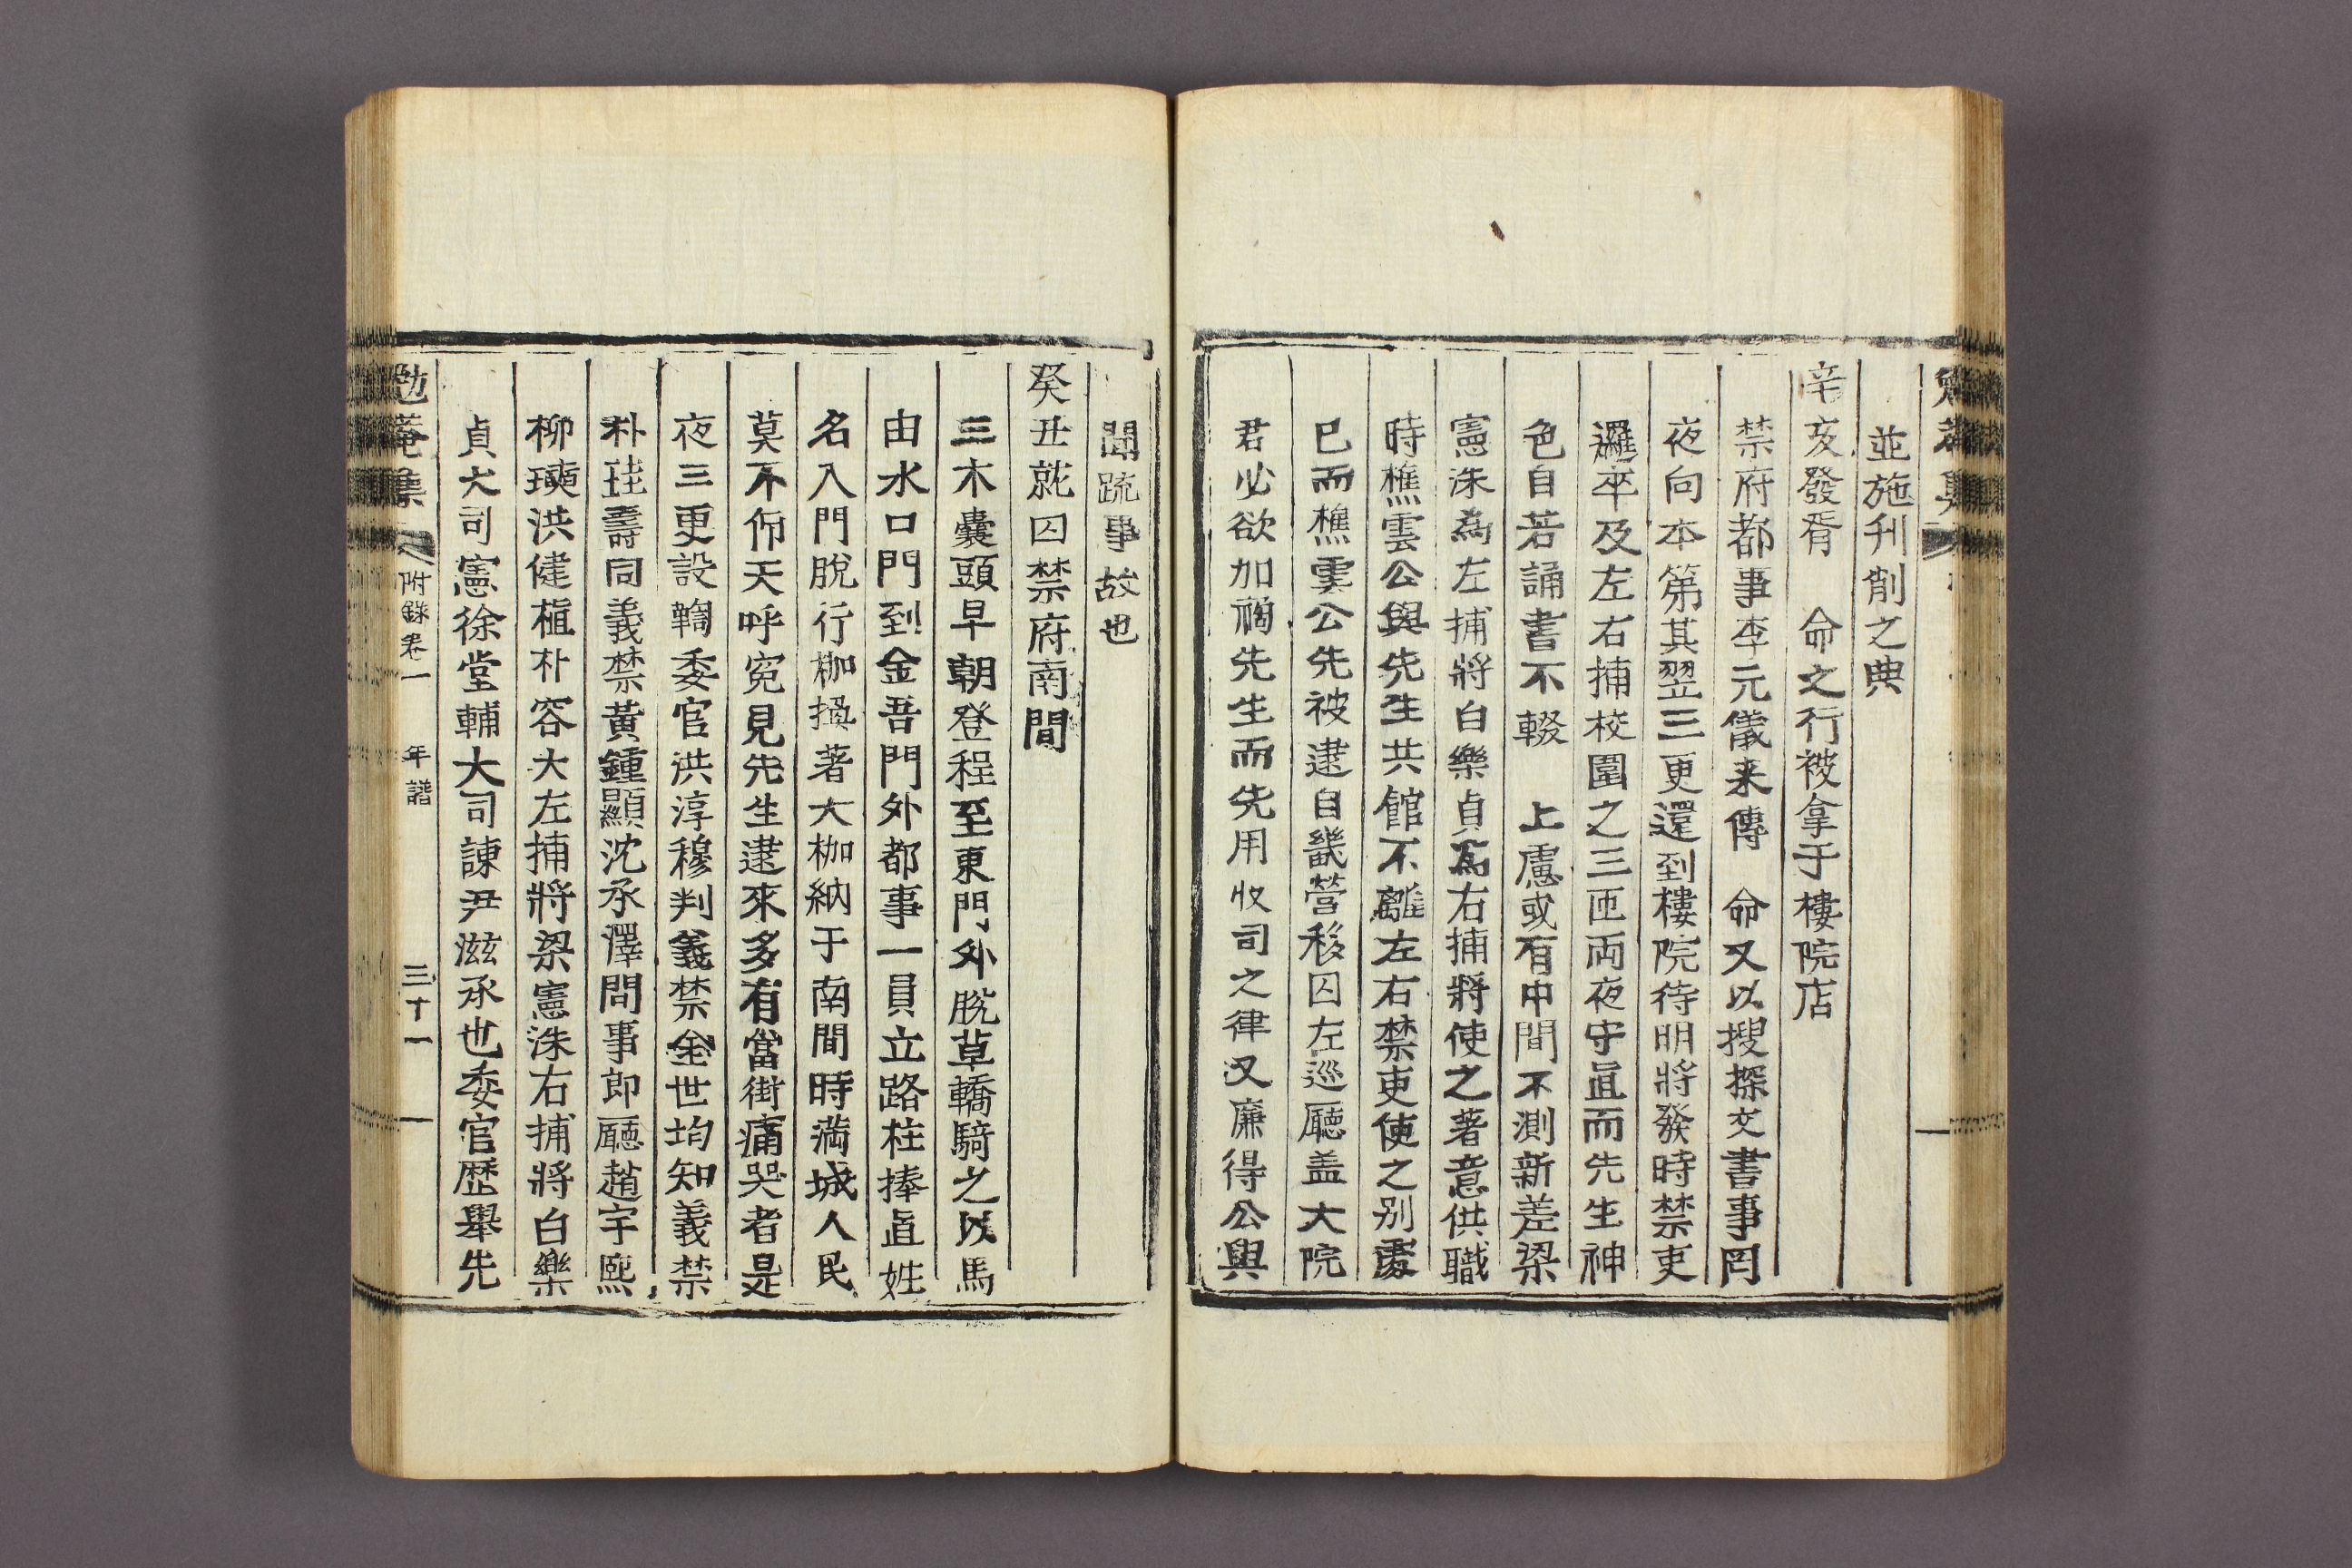 並施刋削之典
辛亥發胥　命之行被拿于樓院店
禁府都事李元儀来傳　命又以搜探文書事罔
夜向本第其翌三更還到樓院待明將發時禁吏
邏卒及左右捕校圍之三匝両夜守直而先生神
色自若誦書不輟　上慮或有中間不測新差梁
憲洙為左捕將白樂貞爲右捕將使之著意供職
時樵雲公與先生共館不離左右禁吏使之别處
已而樵雲公先被逮自畿營移囚左巡廳盖大院
君必欲加禍先生而先用收司之律又廉得公與
聞䟽事故也
癸丑就囚禁府南間
三木囊頭早朝登程至東門外脫草轎騎之以馬
由水口門到金吾門外都事一員立路柱捧直姓
名入門脫行枷換著大枷納于南間時滿城人民
莫不仰天呼寃見先生逮來多有當街痛哭者是
夜三更設鞫委官洪淳穆判義禁金世均知義禁
朴珪壽同義禁黃鍾顯沈承澤問事郎廳趙宇熙
柳瓆洪健植朴容大左捕將梁憲洙右捕將白樂
貞大司憲徐堂輔大司諫尹滋承也委官歷舉先
勉菴集　附錄卷一　年譜　三十一